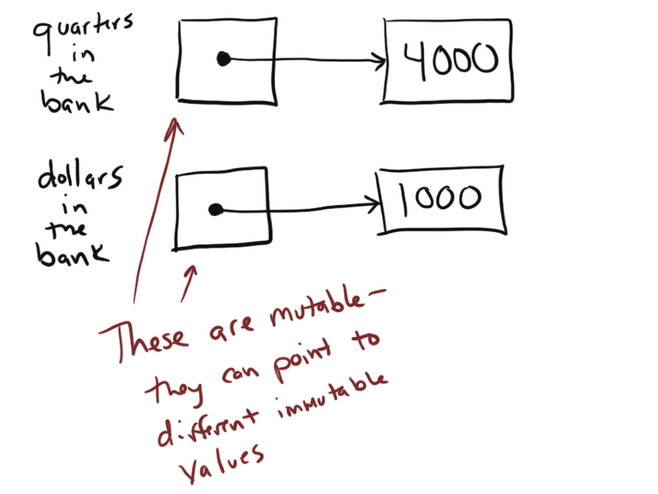 quarters
in
the
bank
4000
dollars
in
the
bank
1000
These are mutable-
they can point to
different immutable
values